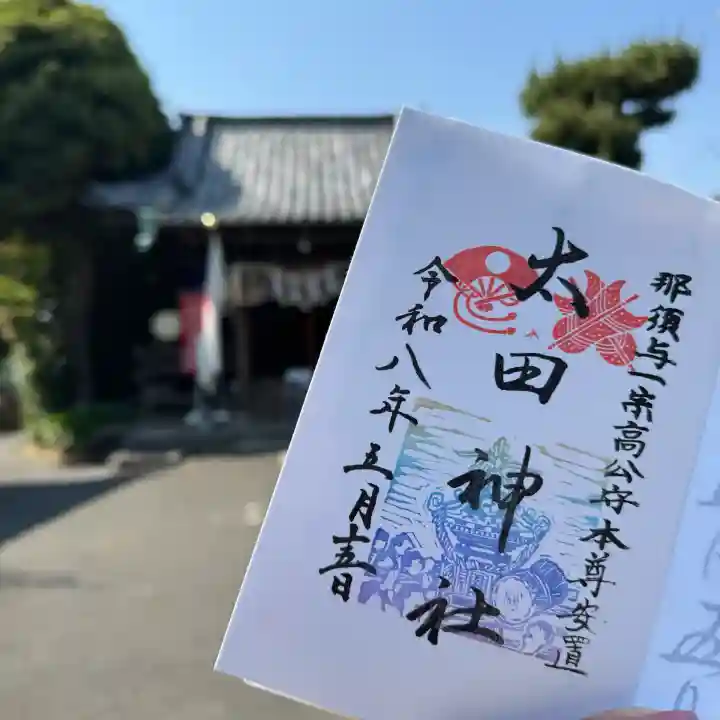 那須与一宗高公守本尊安置
太田神社
令和八年五月十五日